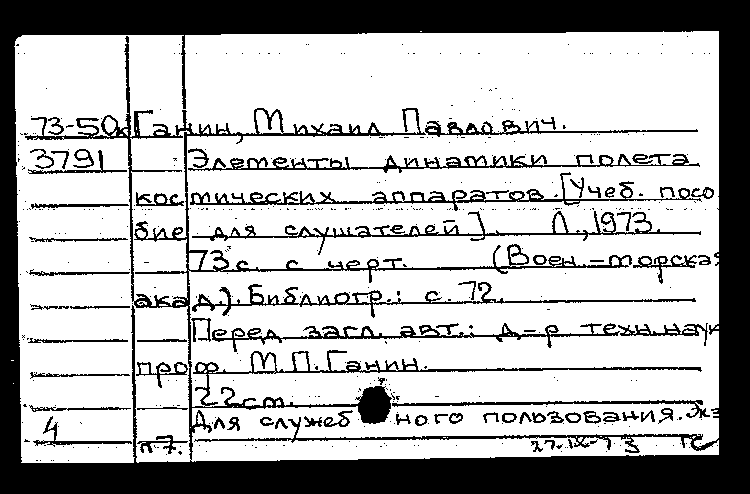 73-50к Ганин, Михаил Павлович.
3791 Элементы динамики полета
космических аппаратов. [Учеб. посо
бие для слушателей]. Л., 1973.
73 с. с черт. (Воен.-морская
акад.). Библиогр.: с. 72.
Перед загл. авт.: д-р техн. наук
проф. М.П. Ганин.
22 см.
4 Для служебного пользования. Экз
п7. 27-IX-73 ГС